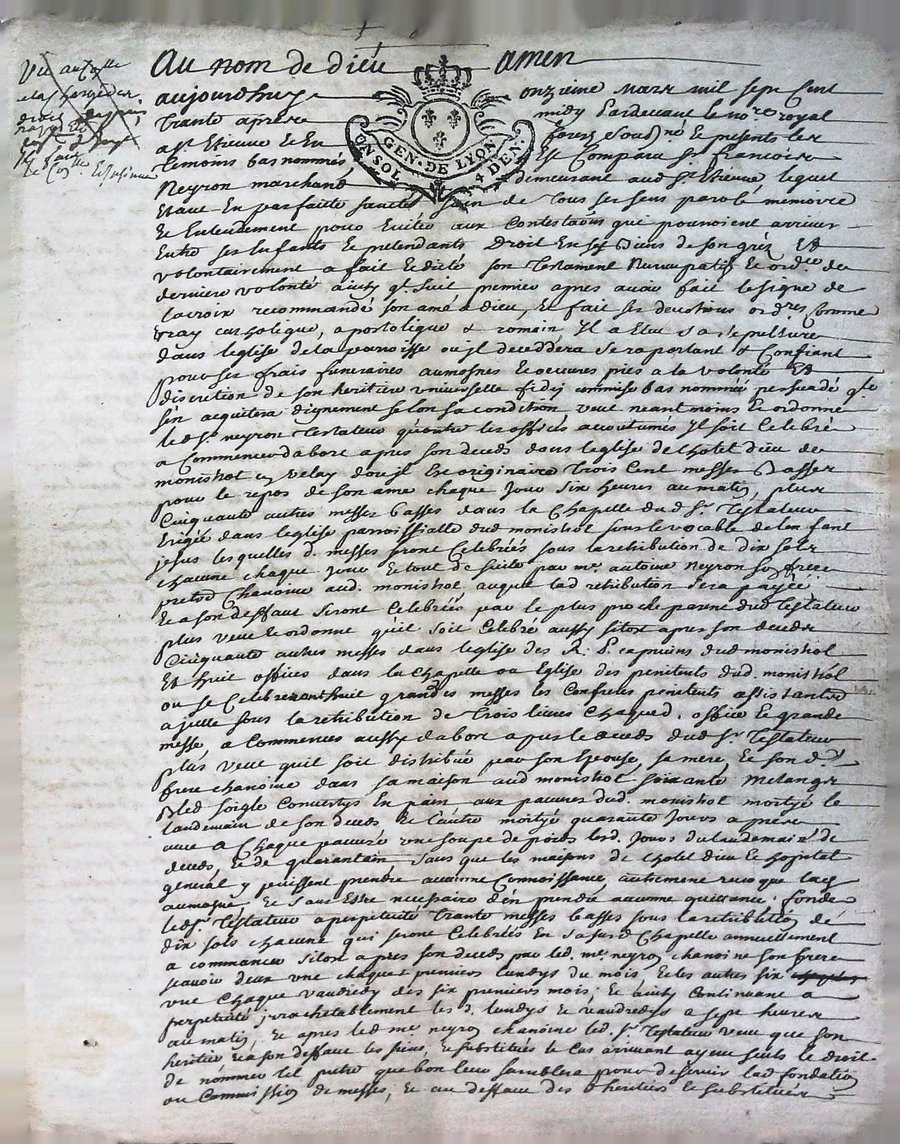 Au nom de dieu amen
aujourdhuy onzieme mars mil sept cent
trante apres midy pardevant le no.re royal
a St Etienne et En forez soud.né Et presents les
temoins bas nommés Est Comparu Sr francois
Neyron marchand demeurant aud St Etienne lequel
Etant En parfaite santé de tous ses sens parole memoire
Et Entendement pour Eviter aux Contestaõns qui pouroient arriver
Entre ses Enfants Et pretendants Droit En ses Biens de son gréz Et
volontairement a fait Et dicté son Testament Nuncupatif Et ord.re de
derniere volonté ainsy q.l suit premier apres avoir fait le signe de
la croix recommandé son ame a dieu, Et fait ses devotions ord.res Comme
vray catholique, apostolique & romain Il a Elue sa sepulture
dans leglise de la parroisse ou jl deceddera se raportant & Confiant
pour ses frais funeraires aumosnes Et oeuvres pies a la volonté Et
discretion de son heritiere universelle fidej commise bas nommée persuadé q.le
sen acquitera dignement selon sa condition, veut neantmoins Et ordonne
led Sr neyron Testateur quoutre les offices acoutumés Il soit Celebré
a Commencer dabord apres son deceds dans leglise de lhotel dieu de
monistrol en Velay dou jl Est originaire Trois Cent messes Basses
pour le repos de son ame chaque Jour six heures au matin, plus
Cinquante autres messes basses dans la Chapelle dud Sr Testateur
Erigée dans leglise parroissialle dud monistrol sous le vocable de lenfant
jesus lesquelles d. messes seront Celebrées sous la retribution de dix sols
chacune chaque Jour Et tout de suitte par mre antoine Neyron son frere
pretre Chanoine aud. monistrol auquel lad retribution sera payée
Et a son deffaut seront Celebrées par le plus proche parent dud Testateur
plus veut Et ordonne quil soit Celebré aussy sitot apres son deceds
Cinquante autres messes dans leglise des R. P. capucins dud monistrol
Et huit offices dans la Chapelle ou Eglise des penitents dud. monistrol
ou se Celebreront huit grandes messes les Confreres penitents assistants
a jcelle sous la retribution de Trois livres chaque d. office Et grande
messe, a Commencer aussy dabord apres le deceds dud Sr Testateur
plus veut quil soit distribué par son Epouse, sa mere, Et son d.
frere chanoine dans sa maison aud monistrol soixante
Bled soigle Convertys En pain, aux pauvres dud. monistrol mortyé le
landemain de son deceds Et lautre mortyé quarante Jours apres
avec a Chaque pauvre une soupe de poids lesd. Jours du landemain de
deceds, Et de quarantain sans que les maisons de lhotel dieu Et hopital
general y puissent prendre aucune Connoissance, autrement
aumosne, Et sans Estre necessaire den prendre aucune quittance. fonde
led Sr Testateur a perpetuité Trante messes basses sous la retribution de
dix sols chacune qui seront Celebrées En sa sus d Chapelle annuellement
a commancer sitot apres son deceds par led. mre neyron chanoine son frere
scavoir deux une chaque premiers lundys du mois Et les autres six
une Chaque vandredy des six premiers mois, Et ainsy Continuant a
perpetuité jrrachetablement les d. lundys Et vandredys a sept heures
au matin, Et apres led mre neyron chanoine led. Sr Testateur veut que son
heritier Et a son deffaut les siens, Et substitués le cas arrivant ayent seuls le droit
de nommer tel pretre que bon leur semblera pour deservir lad fondation
ou Commission de messes, Et au deffaut des d heritiers Et substitués